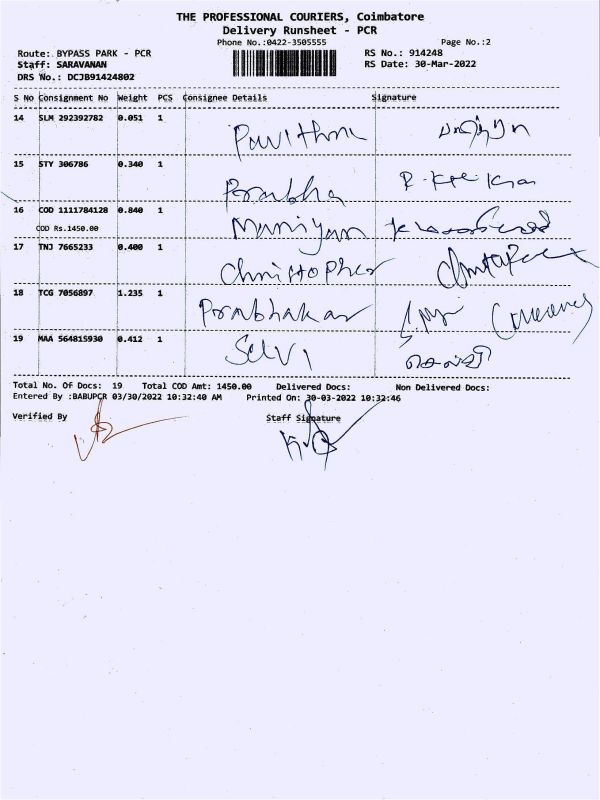 THE PROFESSIONAL COURIERS, Coimbatore
Delivery Runsheet - PCR
Phone No.:0422-3505555
Page No.:2
Route: BYPASS PARK - PCR
RS No.: 914248
Staff: SARAVANAN
RS Date: 30-Mar-2022
DRS No.: DCJB91424802
S No Consignment No Weight PCS Consignee Details Signature
14 SLM 292392782 0.051 1 Pavithra
15 STY 306786 0.340 1 Prabha
16 COD 1111784128 0.840 1 Maniyan
COD Rs.1450.00
17 TNJ 7665233 0.400 1 Christopher
18 TCG 7056897 1.235 1 Prabhakar
19 MAA 564815930 0.412 1 Selvi
Total No. Of Docs: 19 Total COD Amt: 1450.00 Delivered Docs: Non Delivered Docs:
Entered By :BABUPCR 03/30/2022 10:32:40 AM Printed On: 30-03-2022 10:32:46
Verified By Staff Signature